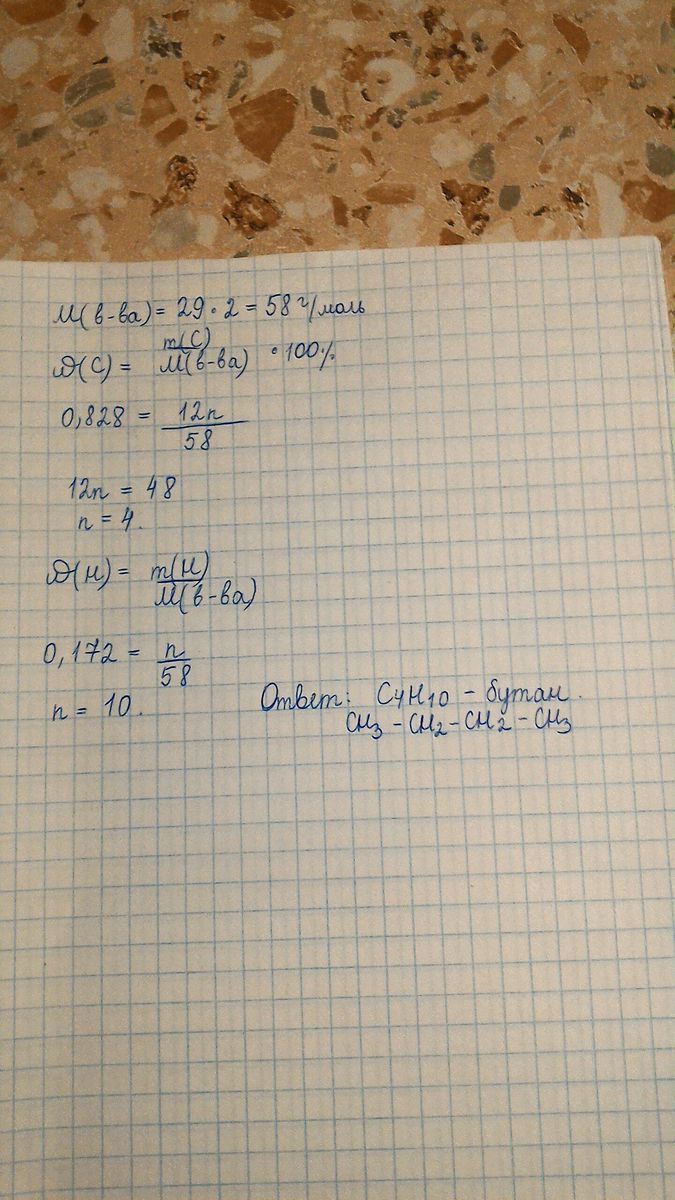 M(в-ва) = 29 · 2 = 58 г/моль
ω(C) = m(C)/M(в-ва) · 100%
0,828 = 12n/58
12n = 48
n = 4.
ω(H) = m(H)/M(в-ва)
0,172 = n/58
n = 10.
Ответ: C4H10 – бутан.
CH3 – CH2 – CH2 – CH3